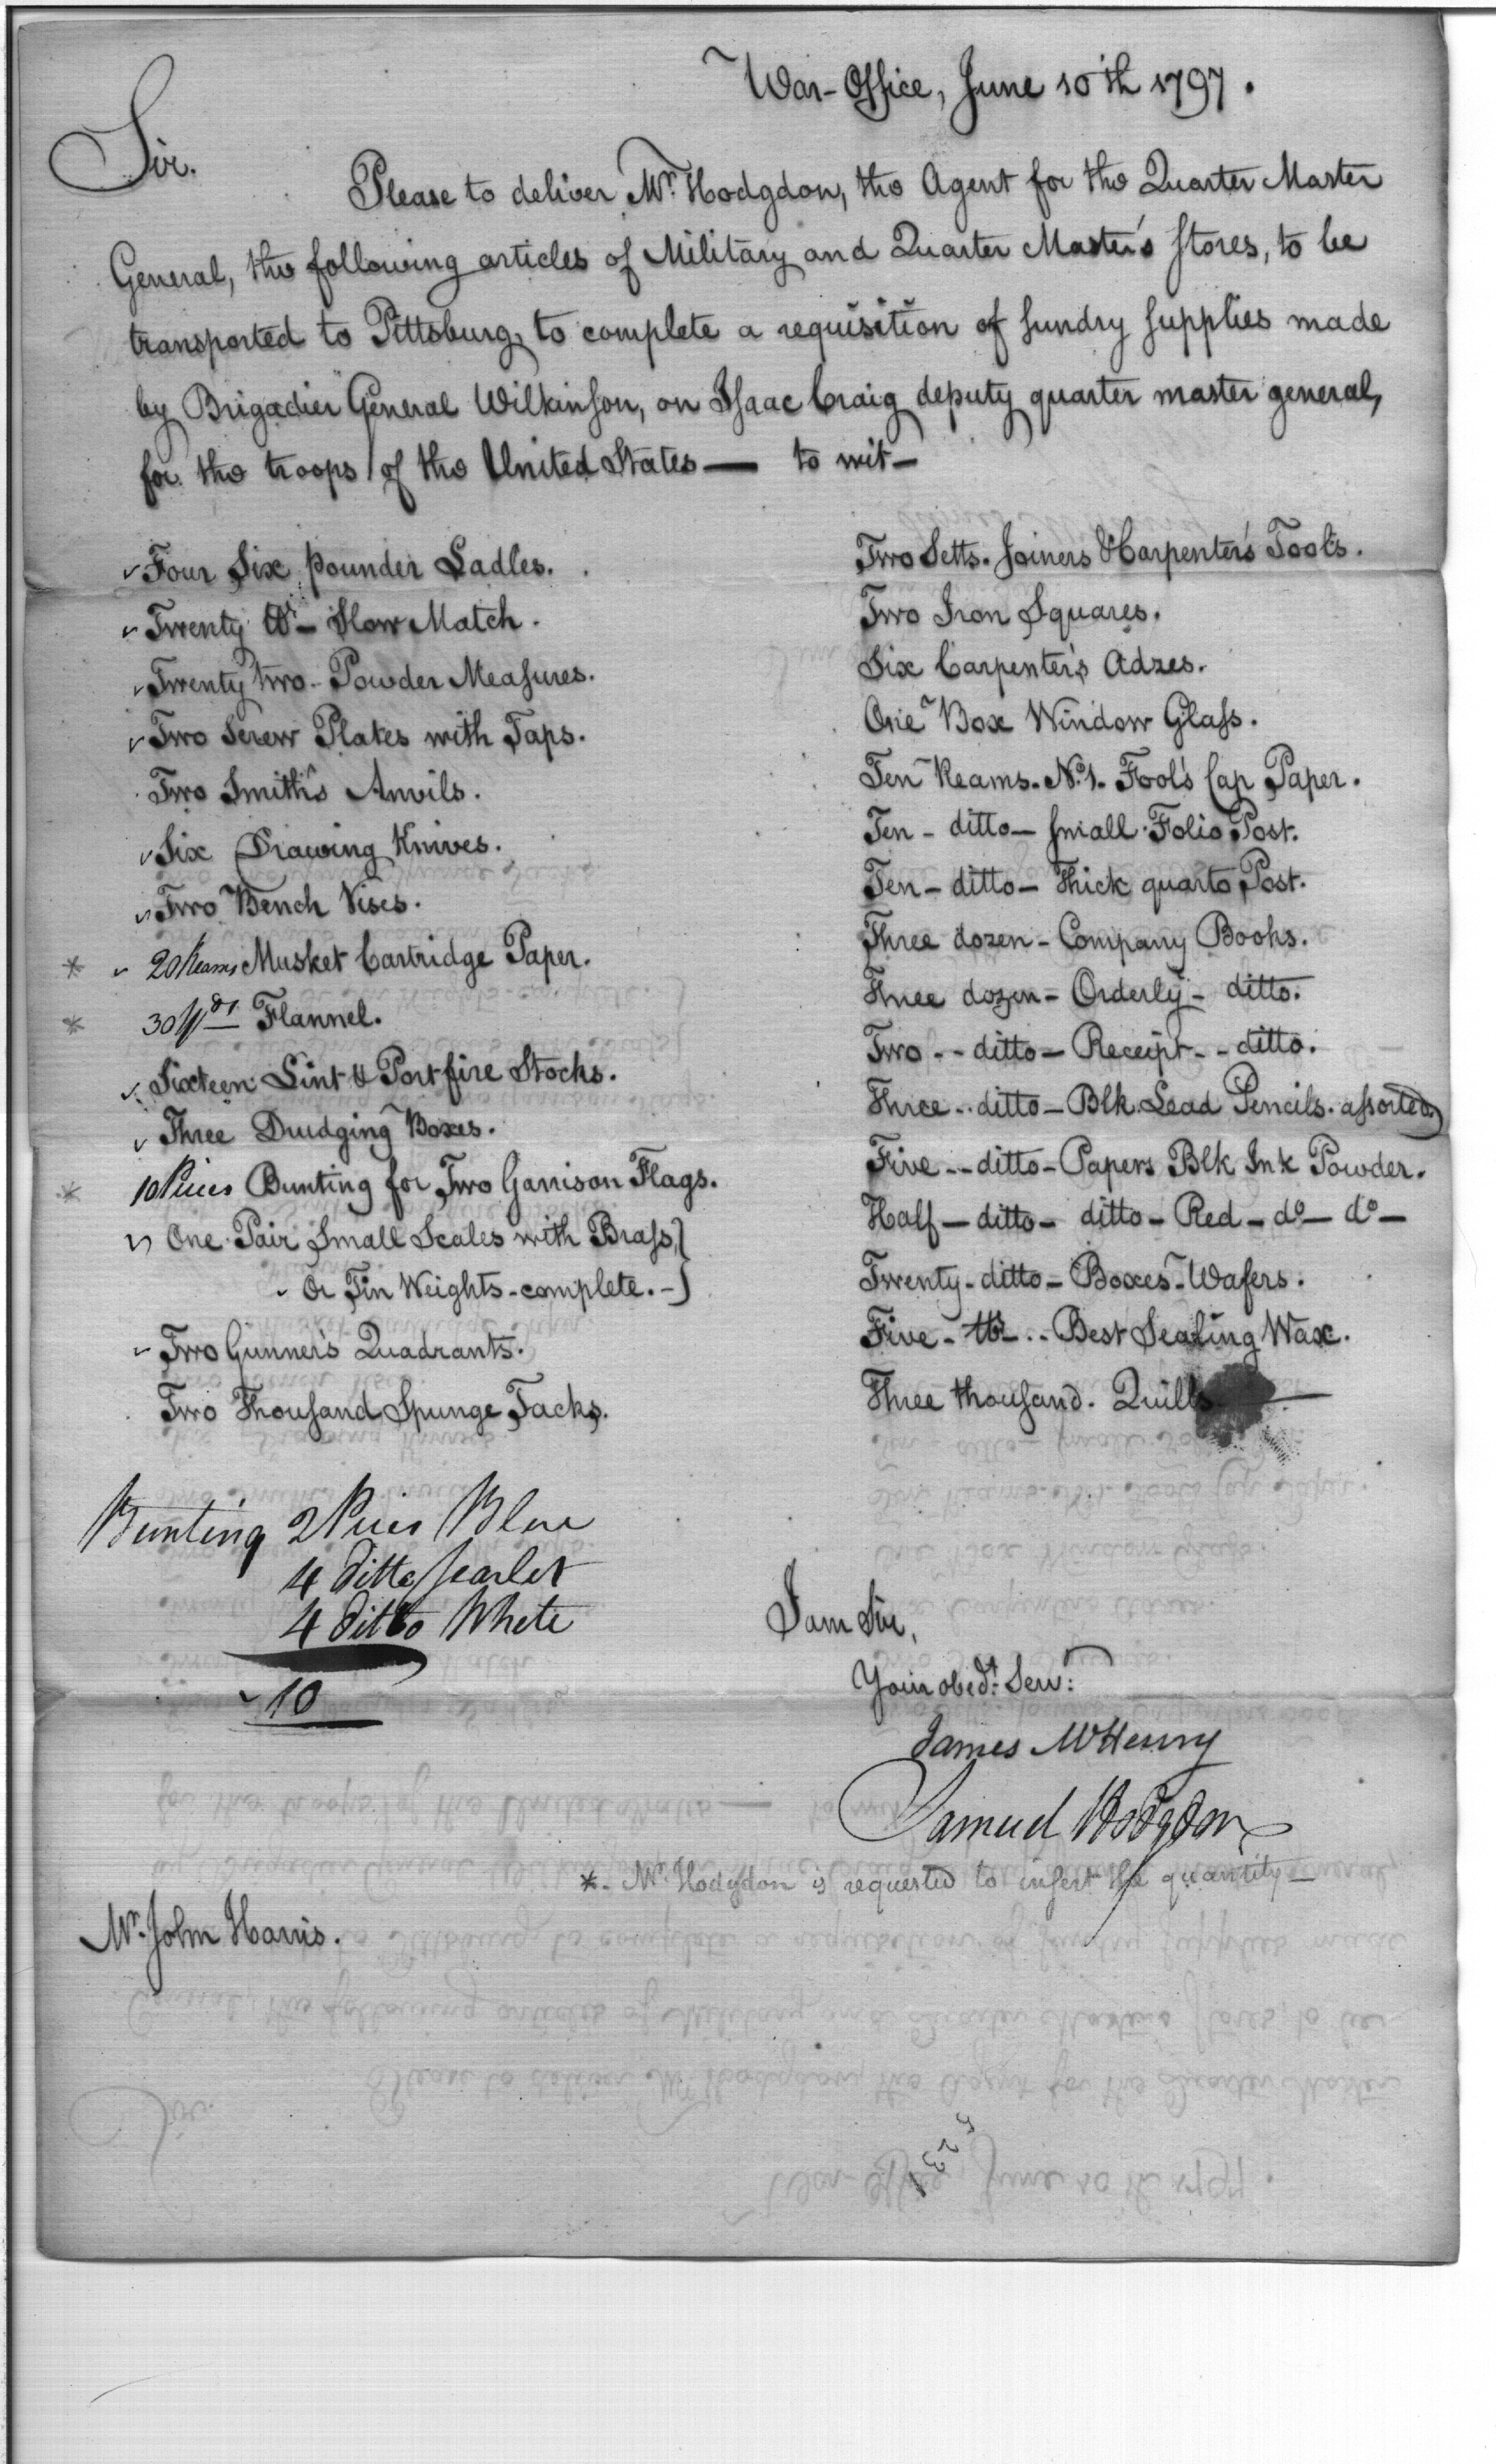 War-Office, June 10th 1797.
Sir.
Please to deliver Mr. Hodgdon, the Agent for the Quarter Master
General, the following articles of Military and Quarter Master's Stores, to be
transported to Pittsburg, to complete a requisition of sundry supplies made
by Brigadier General Wilkinson, on Isaac Craig deputy quarter master general,
for the troops of the United States — to wit —
Four Six pounder Ladles.
Twenty lbs - Slow Match.
Twenty two - Powder Measures.
Two Screw Plates with Taps.
Two Smith's Anvils.
Six Drawing Knives.
Two Bench Vises.
* 20 Reams Musket Cartridge Paper.
* 30 Yds Flannel.
Sixteen Lint & Portfire Stocks.
Three Drudging Boxes.
* 10 Pieces Bunting for Two Garrison Flags.
One Pair Small Scales with Brass,}
Or Tin Weights - complete. -}
Two Gunner's Quadrants.
Two Thousand Spunge Tacks.
Two Setts. Joiners & Carpenter's Tools.
Two Iron Squares.
Six Carpenter's Adzes.
One Box Window Glass.
Ten Reams. No. 1. Fool's Cap Paper.
Ten - ditto - small Folio Post.
Ten - ditto - Thick quarto Post.
Three dozen - Company Books.
Three dozen - Orderly - ditto.
Two - - ditto - Receipt - - ditto.
Three - - ditto - Blk. Lead Pencils. assorted.
Five - - ditto - Papers Blk Ink Powder.
Half - ditto - ditto - Red - do - do -
Twenty - ditto - Boxes - Wafers.
Five - lbs - - Best Sealing Wax.
Three thousand. Quills. —
Bunting 2 Pieces Blue
4 ditto Scarlet
4 ditto White
10
I am Sir,
Your obedt. Serv:
James McHenry
Samuel Hodgdon
*. Mr. Hodgdon is requested to insert the quantity —
Mr. John Harris.